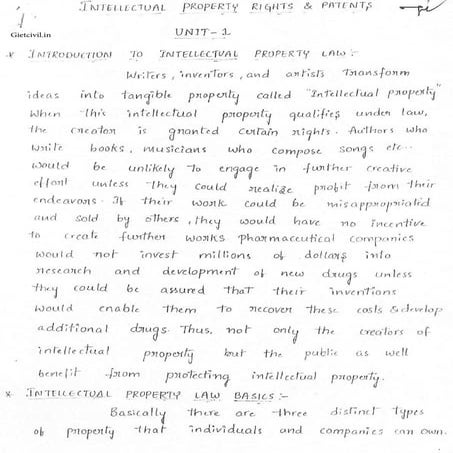 INTELLECTUAL PROPERTY RIGHTS & PATENTS
Gietcivil.in
UNIT-1
* INTRODUCTION TO INTELLECTUAL PROPERTY LAW:-
Writers, inventors, and artists transform
ideas into tangible property called "Intellectual property"
When this intellectual property qualifies under law,
the creator is granted certain rights. Authors who
write books, musicians who compose songs etc..
would be unlikely to engage in further creative
effort unless they could realize profit from their
endeavors. If their work could be misappropriated
and sold by others, they would have no incentive
to create further works pharmaceutical companies
would not invest millions of dollars into
research and development of new drugs unless
they could be assured that their inventions
would enable them to recover these costs & develop
additional drugs. Thus, not only the creators of
intellectual property but the public as well
benefit from protecting intellectual property.
* INTELLECTUAL PROPERTY LAW BASICS:-
Basically there are three distinct types
of property that individuals and companies can own.